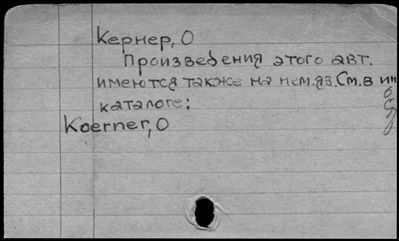 Кернер, О
Произведения этого авт.
имеются также на нем.яз. См. в ин
каталоге:
Koerner, O